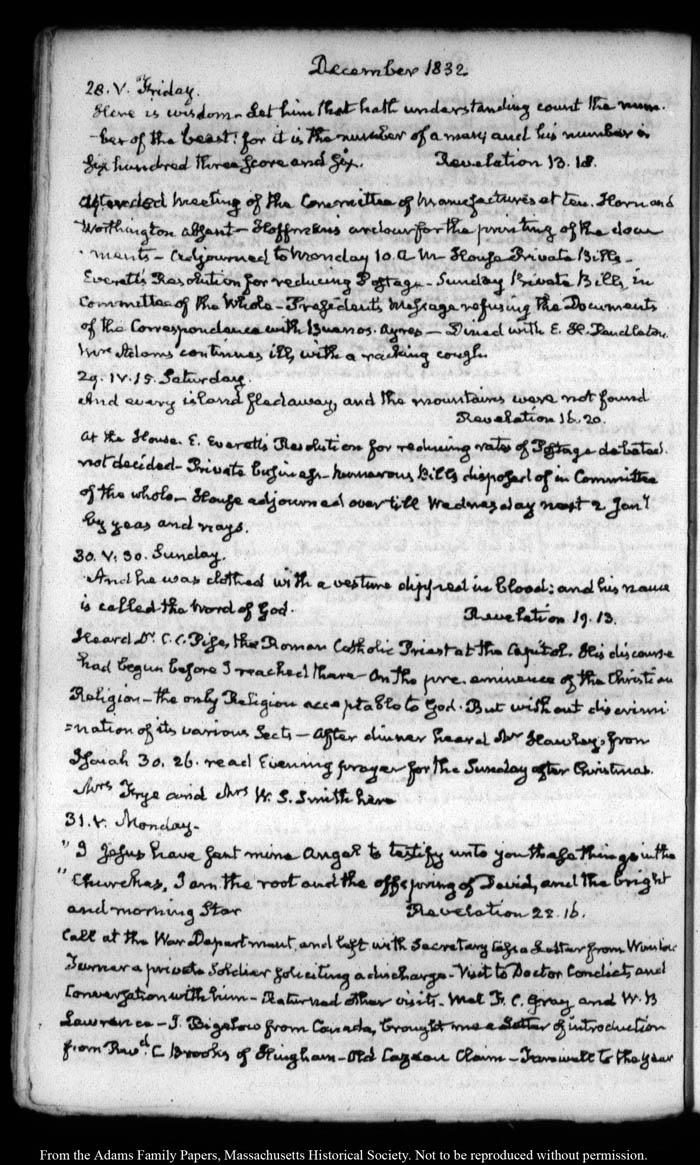 December 1832
28. V. Friday.
Here is wisdom. Let him that hath understanding count the num-
-ber of the beast: for it is the number of a man; and his number is
Six hundred three score and Six. Revelation 13. 18.
Attended Meeting of the Committee of Manufactures at ten. Horn and
Worthington absent — Hoffman's ardour for the printing of the docu
-ments — Adjourned to Monday 10. A.M. House Private Bills —
Everett's Resolution for reducing Postage — Sunday Private Bills, in
Committee of the Whole — President's Message refusing the Documents
of the Correspondence with Buenos. Ayres — Dined with E. H. Pendleton.
Mrs Adams continues ill, with a racking cough.
29. IV. 15. Saturday.
And every island fled away, and the mountains were not found
Revelation 16. 20.
At the House. E. Everett's Resolution for reducing rates of Postage debated.
not decided — Private business — numerous Bills disposed of in Committee
of the whole — House adjourned over till Wednesday next 2 Jany
by yeas and nays.
30. V. 30. Sunday.
And he was clothed with a vesture dipped in blood: and his name
is called the Word of God. Revelation 19. 13.
Heard Dr. C. C. Pise, the Roman Catholic Priest at the Capitol. His discourse
had begun before I reached there — On the pre-eminence of the Christian
Religion — the only Religion acceptable to God. But without discrimi
=nation of its various Sects — After dinner heard Mr Hawley, from
Isaiah 30. 26. read Evening prayer for the Sunday after Christmas.
Mrs Frye and Mrs W. S. Smith here
31. V. Monday.
" I Jesus have sent mine Angel to testify unto you these things in the
" Churches, I am the root and the offspring of David, and the bright
and morning Star Revelation 22. 16.
Call at the War Department, and left with Secretary Cass a Letter from
Turner a private Soldier soliciting a discharge — Visit to Doctor Condict, and
Conversation with him — Returned other visits. Met F. C. Gray and W. B
Lawrence — J. Bigelow from Canada, brought me a Letter of introduction
from Revd. C Brooks of Hingham — Old Cazeau Claim — Farewell to the year
From the Adams Family Papers, Massachusetts Historical Society. Not to be reproduced without permission.